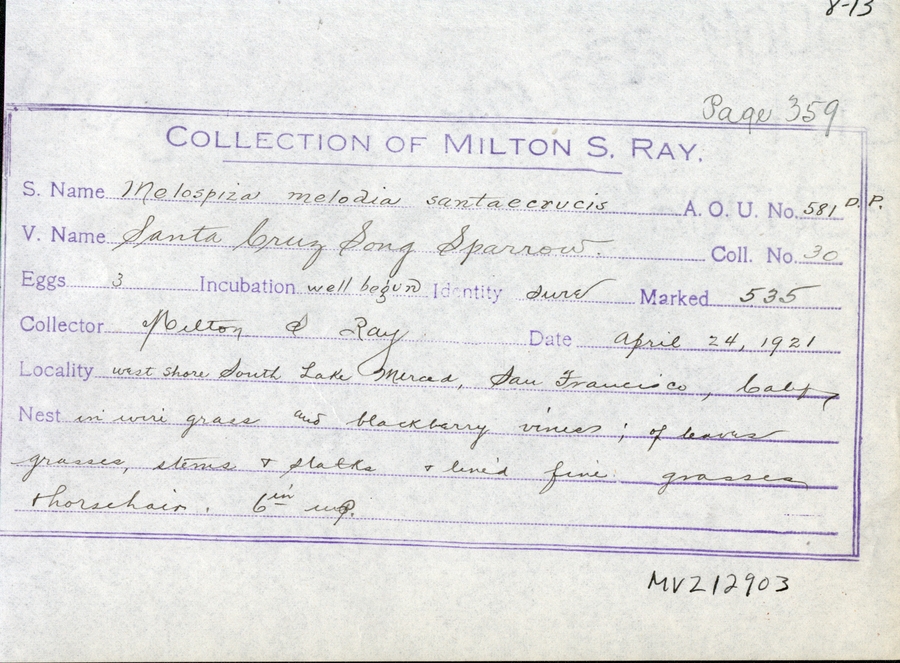 8-13
Page 359
COLLECTION OF MILTON S. RAY.
S. Name Melospiza melodia santaecrucis A. O. U. No. 581 D. P.
V. Name Santa Cruz Song Sparrow. Coll. No. 30
Eggs 3 Incubation well begun Identity sure Marked 535
Collector Milton S Ray Date April 24, 1921
Locality west shore South Lake Merced, San Francisco, Calif
Nest in wire grass and blackberry vines; of leaves
grasses, stems & stalks & lined fine grasses
& horsehair. 6 in up.
MVZ12903